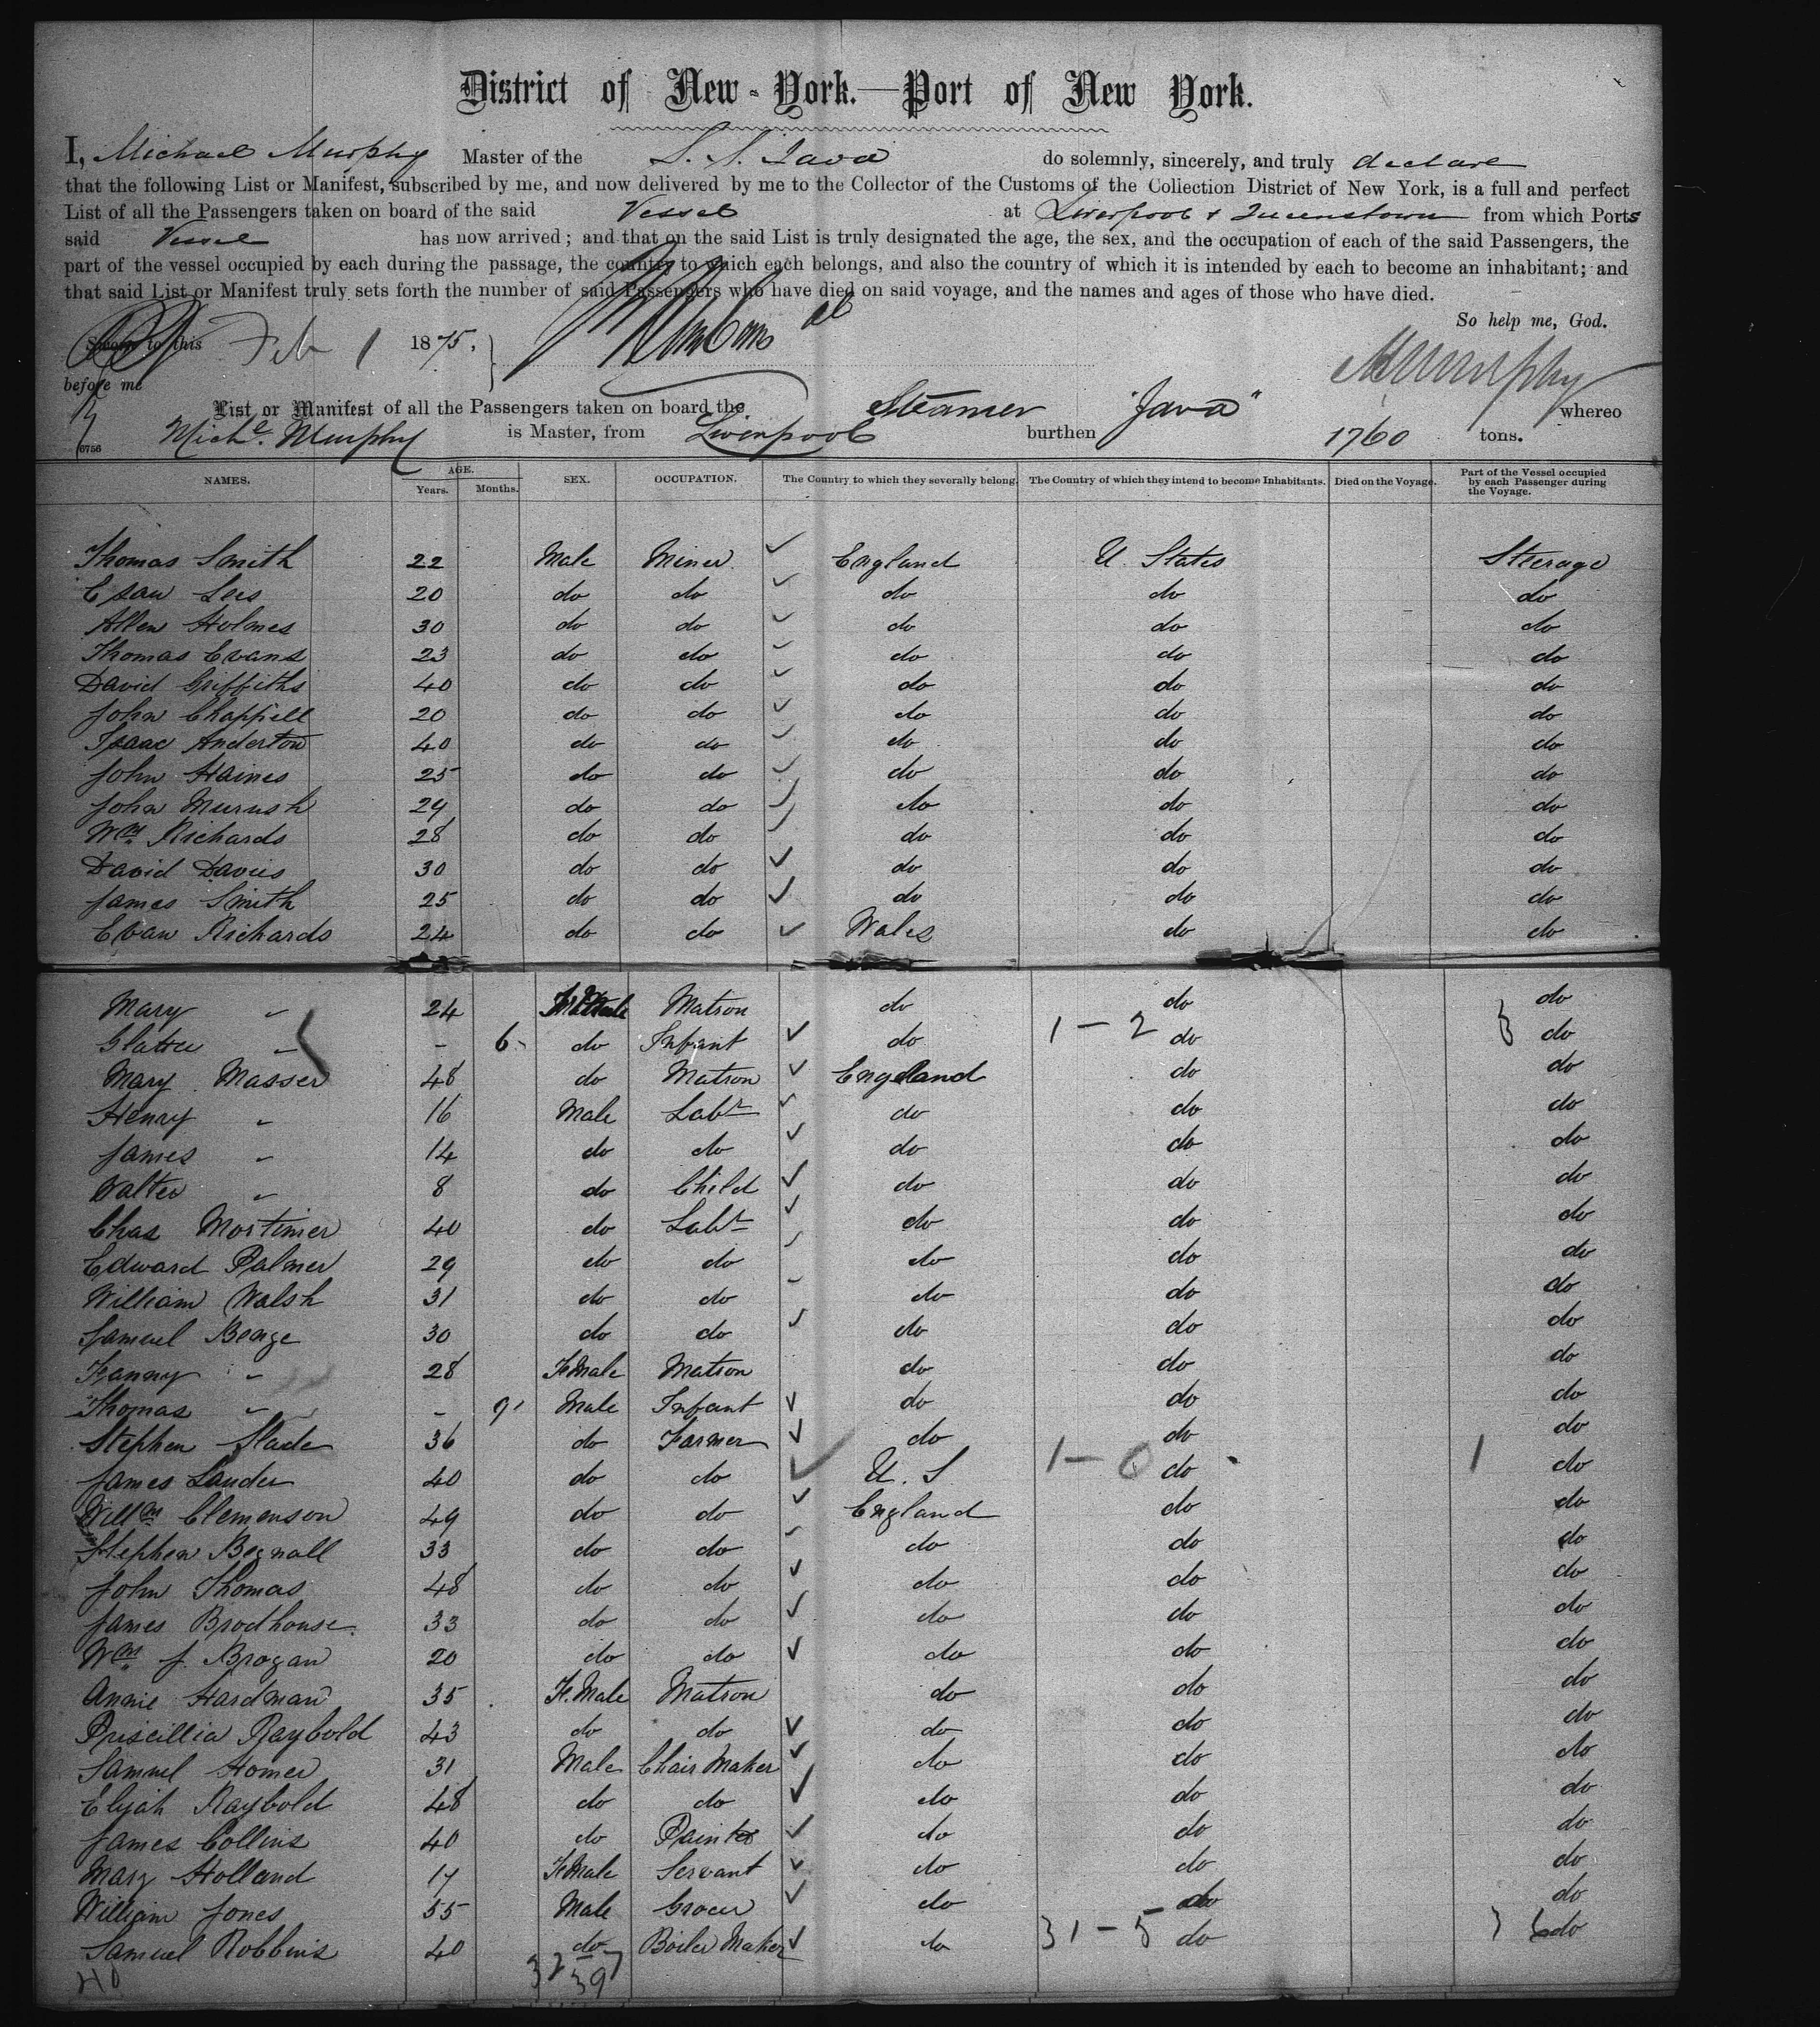 District of New-York.—Port of New York.
I, Michael Murphy Master of the S. S. Java do solemnly, sincerely, and truly declare
that the following List or Manifest, subscribed by me, and now delivered by me to the Collector of the Customs of the Collection District of New York, is a full and perfect
List of all the Passengers taken on board of the said Vessel at Liverpool & Queenstown from which Ports
said Vessel has now arrived; and that on the said List is truly designated the age, the sex, and the occupation of each of the said Passengers, the
part of the vessel occupied by each during the passage, the country to which each belongs, and also the country of which it is intended by each to become an inhabitant; and
that said List or Manifest truly sets forth the number of said Passengers who have died on said voyage, and the names and ages of those who have died.
So help me, God.
Sworn to this Feb 1 1875,
before me
M Murphy
List or Manifest of all the Passengers taken on board the Steamer "Java" whereo
6756 Michl. Murphy is Master, from Liverpool burthen 1760 tons.
NAMES. AGE. Years. Months. SEX. OCCUPATION. The Country to which they severally belong. The Country of which they intend to become Inhabitants. Died on the Voyage. Part of the Vessel occupied by each Passenger during the Voyage.
Thomas Smith 22 Male Miner England U. States Steerage
Esau Lees 20 do do do do do
Allen Holmes 30 do do do do do
Thomas Evans 23 do do do do do
David Griffiths 40 do do do do do
John Chappell 20 do do do do do
Isaac Anderton 40 do do do do do
John Haines 25 do do do do do
John 29 do do do do do
Wm Richards 28 do do do do do
David Davies 30 do do do do do
James Smith 25 do do do do do
Evan Richards 24 do do Wales do do
Mary " 24 Female Matron do do do
" - 6 do Infant do 1-2 do do
Mary Masser 48 do Matron England do do
Henry " 16 Male Labr do do do
James " 14 do do do do do
Walter " 8 do Child do do do
Chas Mortimer 40 do Labr do do do
Edward Palmer 29 do do do do do
William Walsh 31 do do do do do
Samuel Benge 30 do do do do do
Fanny " 28 FeMale Matron do do do
Thomas " - 9 Male Infant do do do
Stephen Slade 36 do Farmer do do do
James Lander 40 do do U. S 1-0 do 1 do
Willm Clemenson 49 do do England do do
Stephen Begnall 33 do do do do do
John Thomas 48 do do do do do
James Brodhouse 33 do do do do do
Wm J. Brogan 20 do do do do do
Annie Hardman 35 Fe.Male Matron do do do
Priscillia Raybold 43 do do do do do
Samuel Homer 31 Male Chair Maker do do do
Elijah Raybold 48 do do do do do
James Collins 40 do Painter do do do
Mary Holland 17 FeMale Servant do do do
William Jones 55 Male Grocer do do do
Samuel Robbins 40 do Boiler Maker do 31-5 do do
40 32 7
39